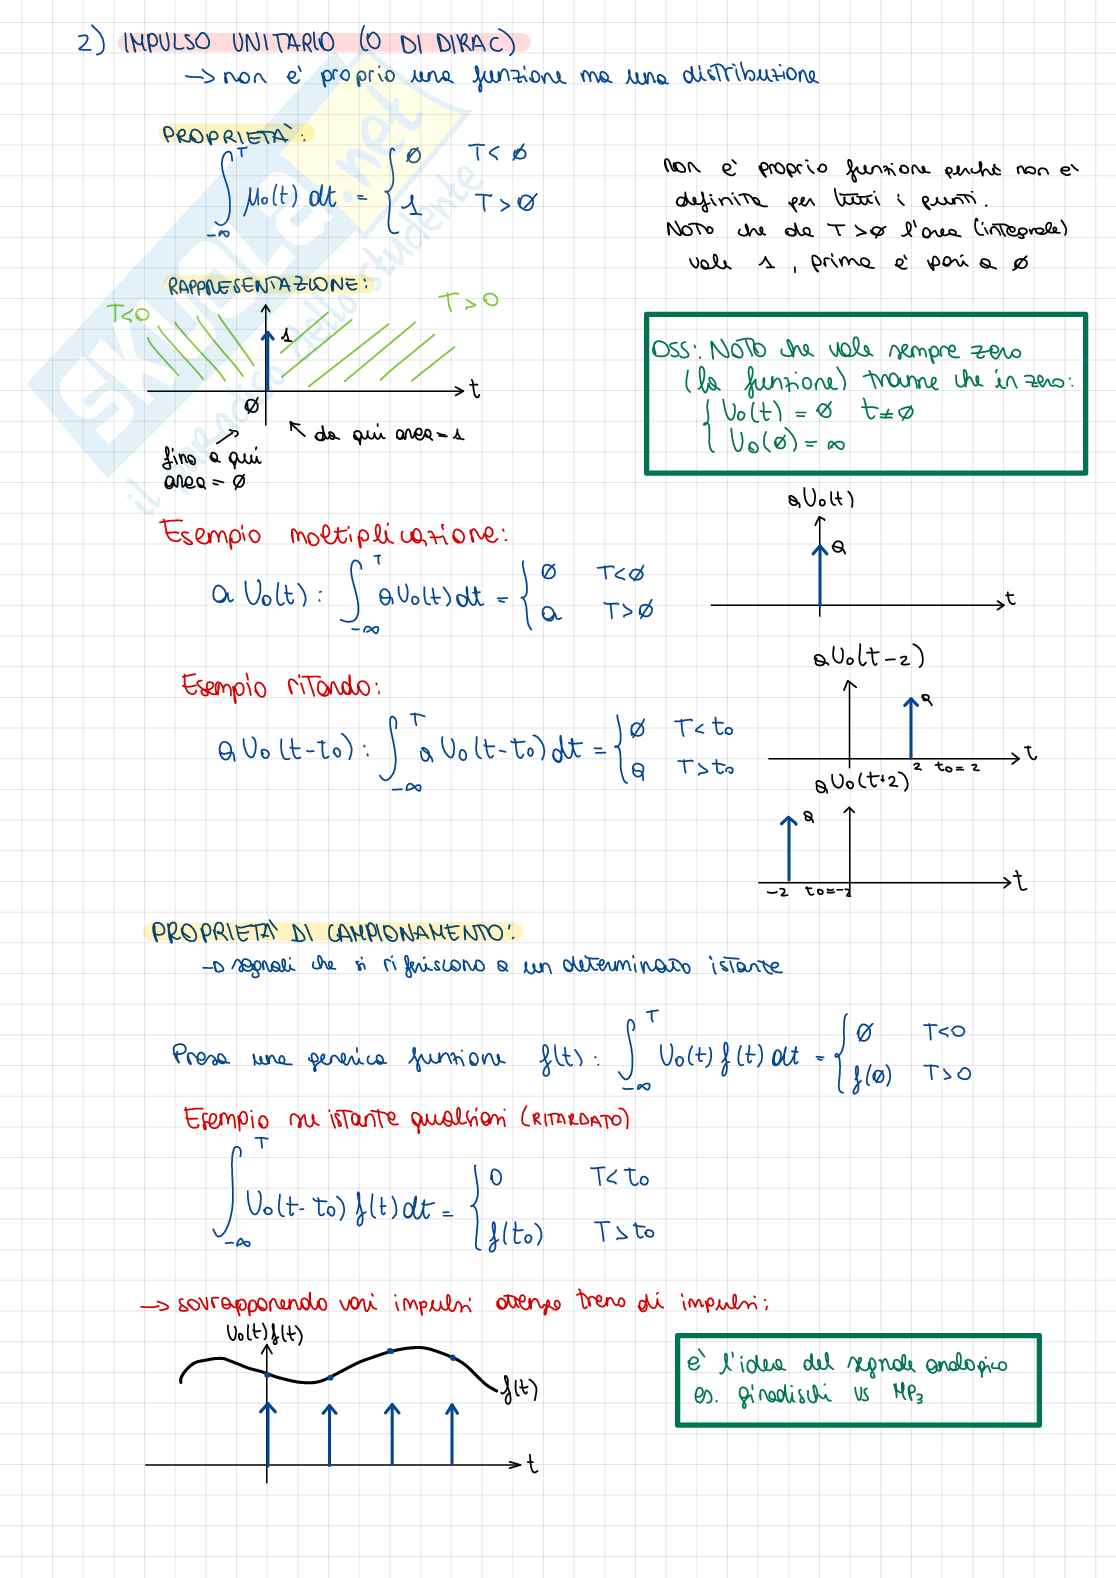 2) IMPULSO UNITARIO (O DI DIRAC)
→ non è proprio una funzione ma una distribuzione
PROPRIETÀ:
∫_{-∞}^{T} μ₀(t) dt = { ∅ T < ∅
1 T > ∅
non è proprio funzione perché non è
definita per tutti i punti.
Noto che da T>∅ l'area (integrale)
vale 1, prima è pari a ∅
RAPPRESENTAZIONE:
T<0
T > 0
1
∅
t
fino a qui
area = ∅
da qui area = 1
OSS: NOTO che vale sempre zero
(la funzione) tranne che in zero:
{ U₀(t) = ∅ t ≠ ∅
U₀(∅) = ∞
Esempio moltiplicazione:
a U₀(t): ∫_{-∞}^{T} a U₀(t) dt = { ∅ T<∅
a T>∅
a U₀(t)
a
t
Esempio ritardo:
a U₀(t-t₀): ∫_{-∞}^{T} a U₀(t-t₀) dt = { ∅ T < t₀
a T > t₀
a U₀(t-2)
a
2 t₀ = 2
t
a U₀(t+2)
a
-2 t₀ = -2
t
PROPRIETÀ DI CAMPIONAMENTO:
→ segnali che si riferiscono a un determinato istante
Presa una generica funzione f(t): ∫_{-∞}^{T} U₀(t) f(t) dt = { ∅ T<0
f(∅) T>0
Esempio su istante qualsiasi (RITARDATO)
∫_{-∞}^{T} U₀(t-t₀) f(t) dt = { 0 T < t₀
f(t₀) T > t₀
→ sovrapponendo vari impulsi ottengo treno di impulsi:
U₀(t) f(t)
f(t)
t
è l'idea del segnale analogico
es. giradischi vs MP3
SKUOLA.net
il paradiso dello studente